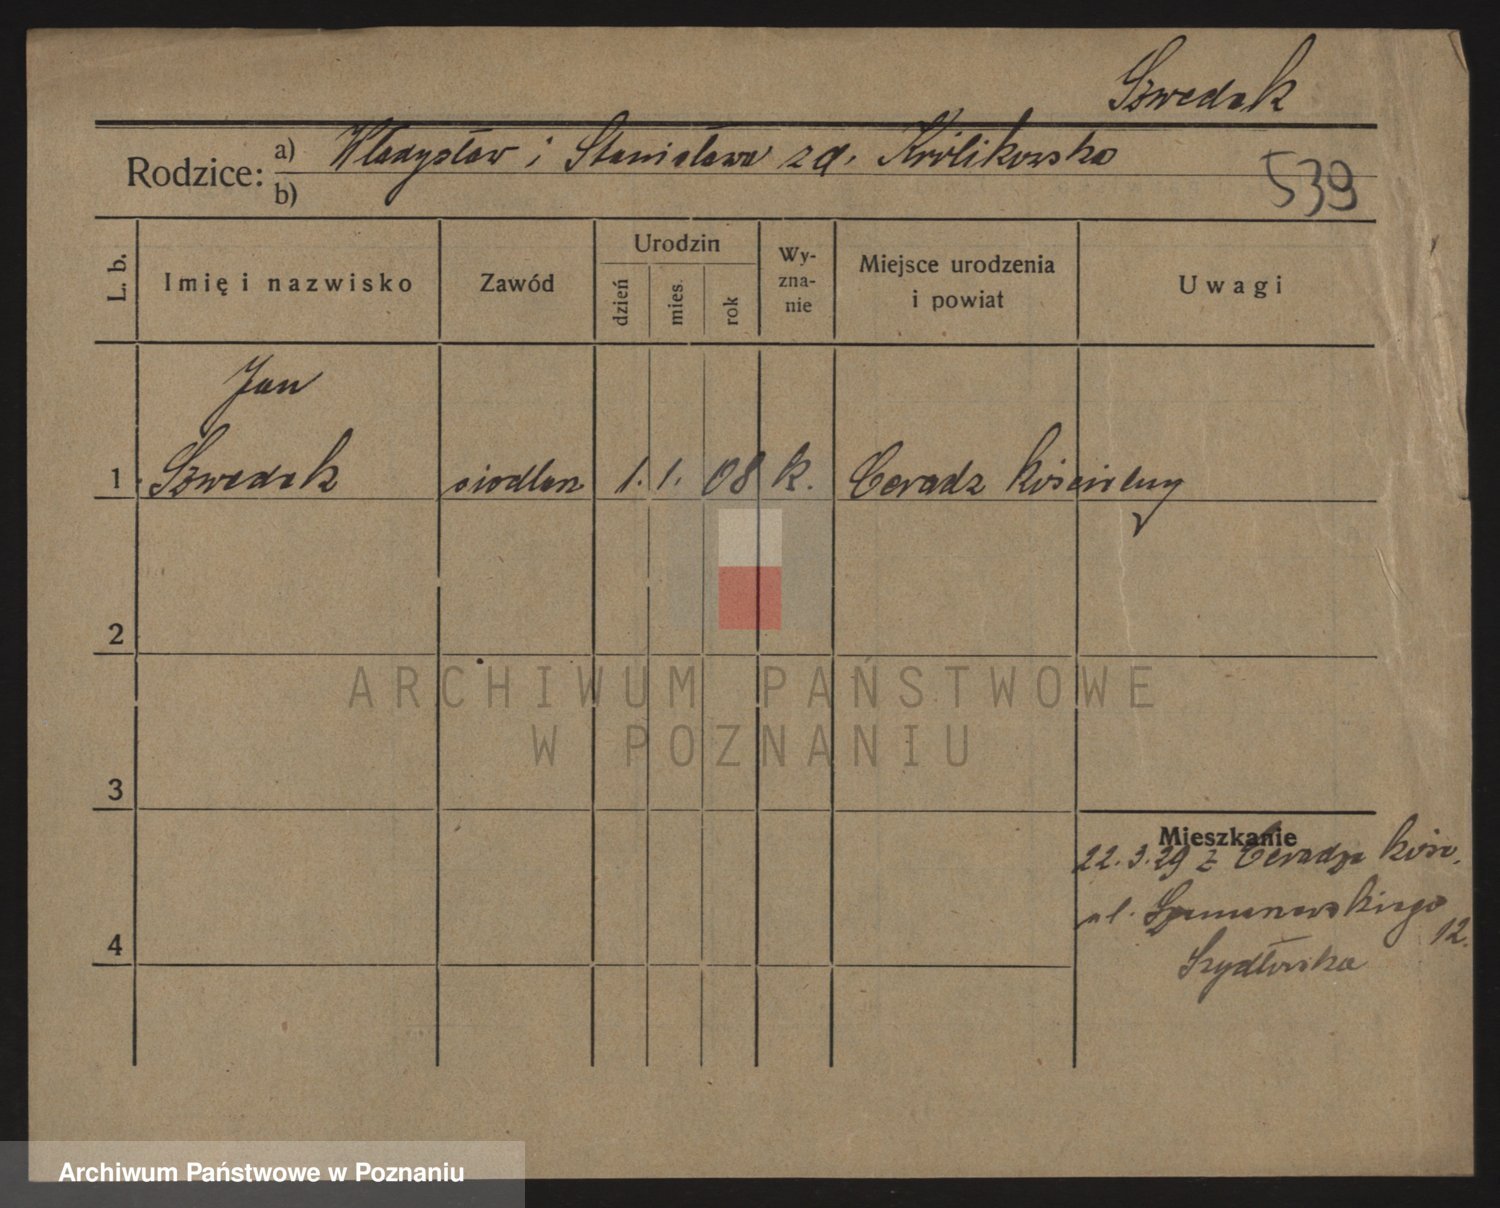 Szwedek
Rodzice:
a) Władysław i Stanisława zd. Królikowska
b)
539
L. b.
Imię i nazwisko
Zawód
Urodzin
dzień
mies.
rok
Wy-
zna-
nie
Miejsce urodzenia
i powiat
Uwagi
Jan
1 Szwedek siodlarz 1. 1. 08 k. Ceradz Kościelny
2
3
4
Mieszkanie
22.3.29 z Ceradza Kośc.
ul. Szamarzewskiego
12.
Szydłowska
ARCHIWUM PAŃSTWOWE
W POZNANIU
Archiwum Państwowe w Poznaniu